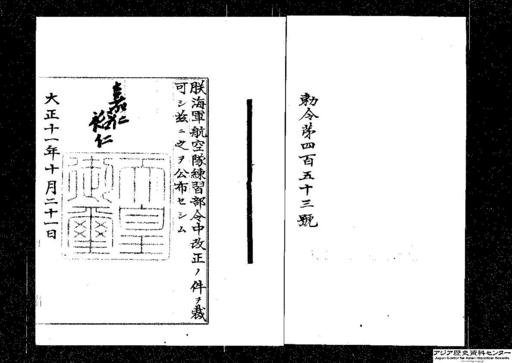 勅令第四百五十三號
朕海軍航空隊練習部令中改正ノ件ヲ裁
可シ茲ニ之ヲ公布セシム
嘉仁
裕仁
天皇
御璽
大正十一年十月二十一日
アジア歴史資料センター
Japan Center for Asian Historical Records